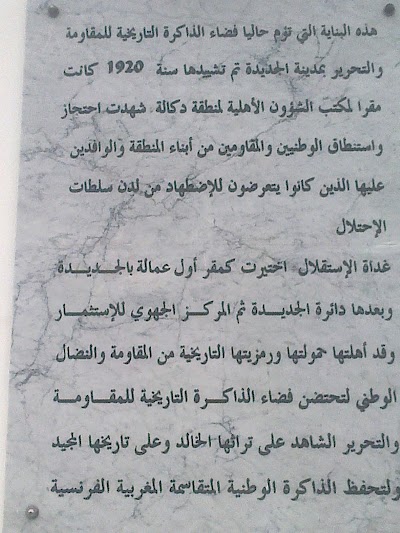 هذه البناية التي تؤم حاليا فضاء الذاكرة التاريخية للمقاومة
والتحرير بمدينة الجديدة تم تشييدها سنة 1920 كانت
مقرا لمكتب الشؤون الأهلية لمنطقة دكالة شهدت احتجاز
واستنطاق الوطنيين والمقاومين من أبناء المنطقة والرافدين
عليها الذين كانوا يتعرضون للإضطهاد من لدن سلطات
الإحتلال
غداة الإستقلال اختيرت كمقر أول عمالة بالجديدة
وبعدها دائرة الجديدة ثم المركز الجهوي للإستثمار
وقد أهلتها حمولتها ورمزيتها التاريخية من المقاومة والنضال
الوطني لتحتضن فضاء الذاكرة التاريخية للمقاومة
والتحرير الشاهد على تراثها الخالد وعلى تاريخها المجيد
ولتحفظ الذاكرة الوطنية المتقاسمة المغربية الفرنسية